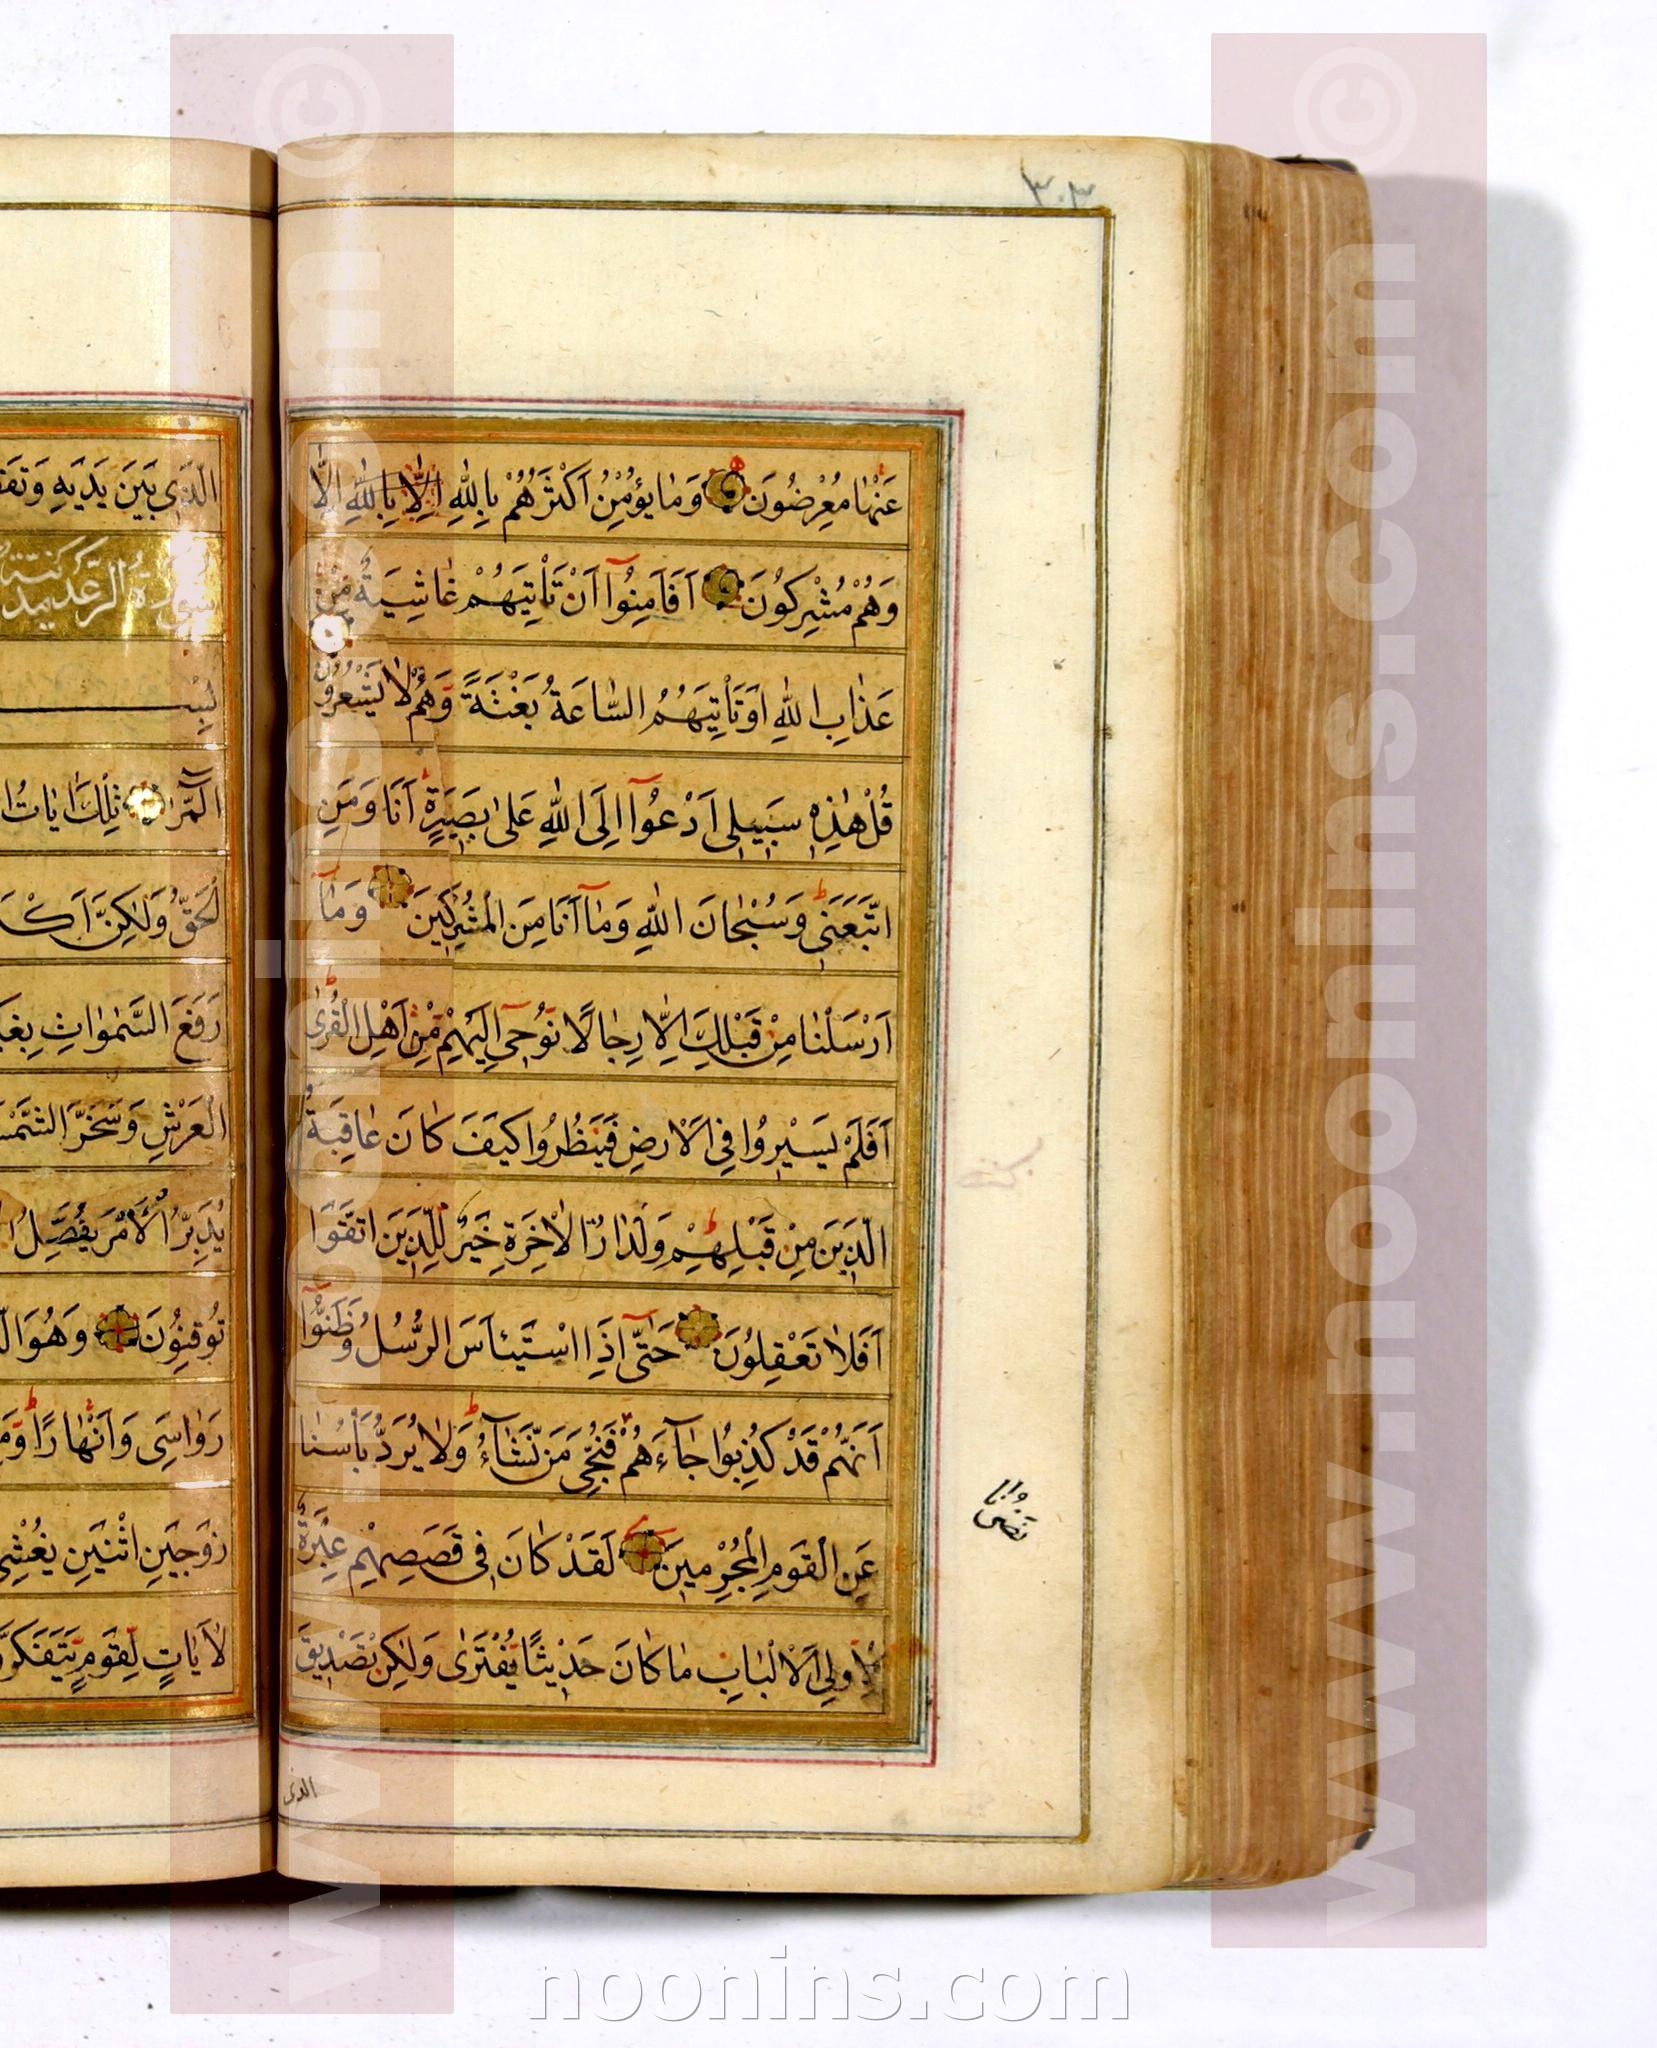 ٣٠٣
عَنْهٰا مُعْرِضُونَ وَمٰا يُؤْمِنُ اَكْثَرُهُمْ بِاللّٰهِ اِلّٰا بِاللّٰهِ اِلّٰا
وَهُمْ مُشْرِكُونَ اَفَاَمِنُوآ اَنْ تَأْتِيَهُمْ غٰاشِيَةٌ مِنْ
عَذٰابِ اللّٰهِ اَوْ تَأْتِيَهُمُ السّٰاعَةُ بَغْتَةً وَهُمْ لٰا يَشْعُرُونَ
قُلْ هٰذِهٖ سَبٖيلٖى اَدْعُوآ اِلَى اللّٰهِ عَلٰى بَصٖيرَةٍ اَنَا وَمَنِ
اتَّبَعَنٖى وَسُبْحٰانَ اللّٰهِ وَمٰآ اَنَا مِنَ الْمُشْرِكٖينَ وَمٰآ
اَرْسَلْنٰا مِنْ قَبْلِكَ اِلّٰا رِجٰالًا نُوحٖىٓ اِلَيْهِمْ مِنْ اَهْلِ الْقُرٰى
اَفَلَمْ يَسٖيرُوا فِى الْاَرْضِ فَيَنْظُرُوا كَيْفَ كٰانَ عٰاقِبَةُ
الَّذٖينَ مِنْ قَبْلِهِمْ وَلَدٰارُ الْاٰخِرَةِ خَيْرٌ لِلَّذٖينَ اتَّقَوْا
اَفَلٰا تَعْقِلُونَ حَتّٰىٓ اِذَا اسْتَيْئَسَ الرُّسُلُ وَظَنُّوآ
اَنَّهُمْ قَدْ كُذِبُوا جٰآءَهُمْ فَنُجِّىَ مَنْ نَشٰآءُ وَلٰا يُرَدُّ بَأْسُنٰا
عَنِ الْقَوْمِ الْمُجْرِمٖينَ لَقَدْ كٰانَ فٖى قَصَصِهِمْ عِبْرَةٌ
لِاُولِى الْاَلْبٰابِ مٰا كٰانَ حَدٖيثًا يُفْتَرٰى وَلٰكِنْ تَصْدٖيقَ
الذى
الَّذٖى بَيْنَ يَدَيْهِ
سورة الرعد
بِسْـ
الٓمّٓرٰ تِلْكَ اٰيٰاتُ
الْحَقُّ وَلٰكِنَّ
رَفَعَ السَّمٰوٰاتِ
الْعَرْشِ وَسَخَّرَ الشَّمْسَ
يُدَبِّرُ الْاَمْرَ يُفَصِّلُ
تُوقِنُونَ وَهُوَ
رَوٰاسِىَ وَاَنْهٰارًا
زَوْجَيْنِ اثْنَيْنِ يُغْشِى
لَاٰيٰاتٍ لِقَوْمٍ يَتَفَكَّرُونَ
www.noonins.com ©
www.noonins.com ©
noonins.com